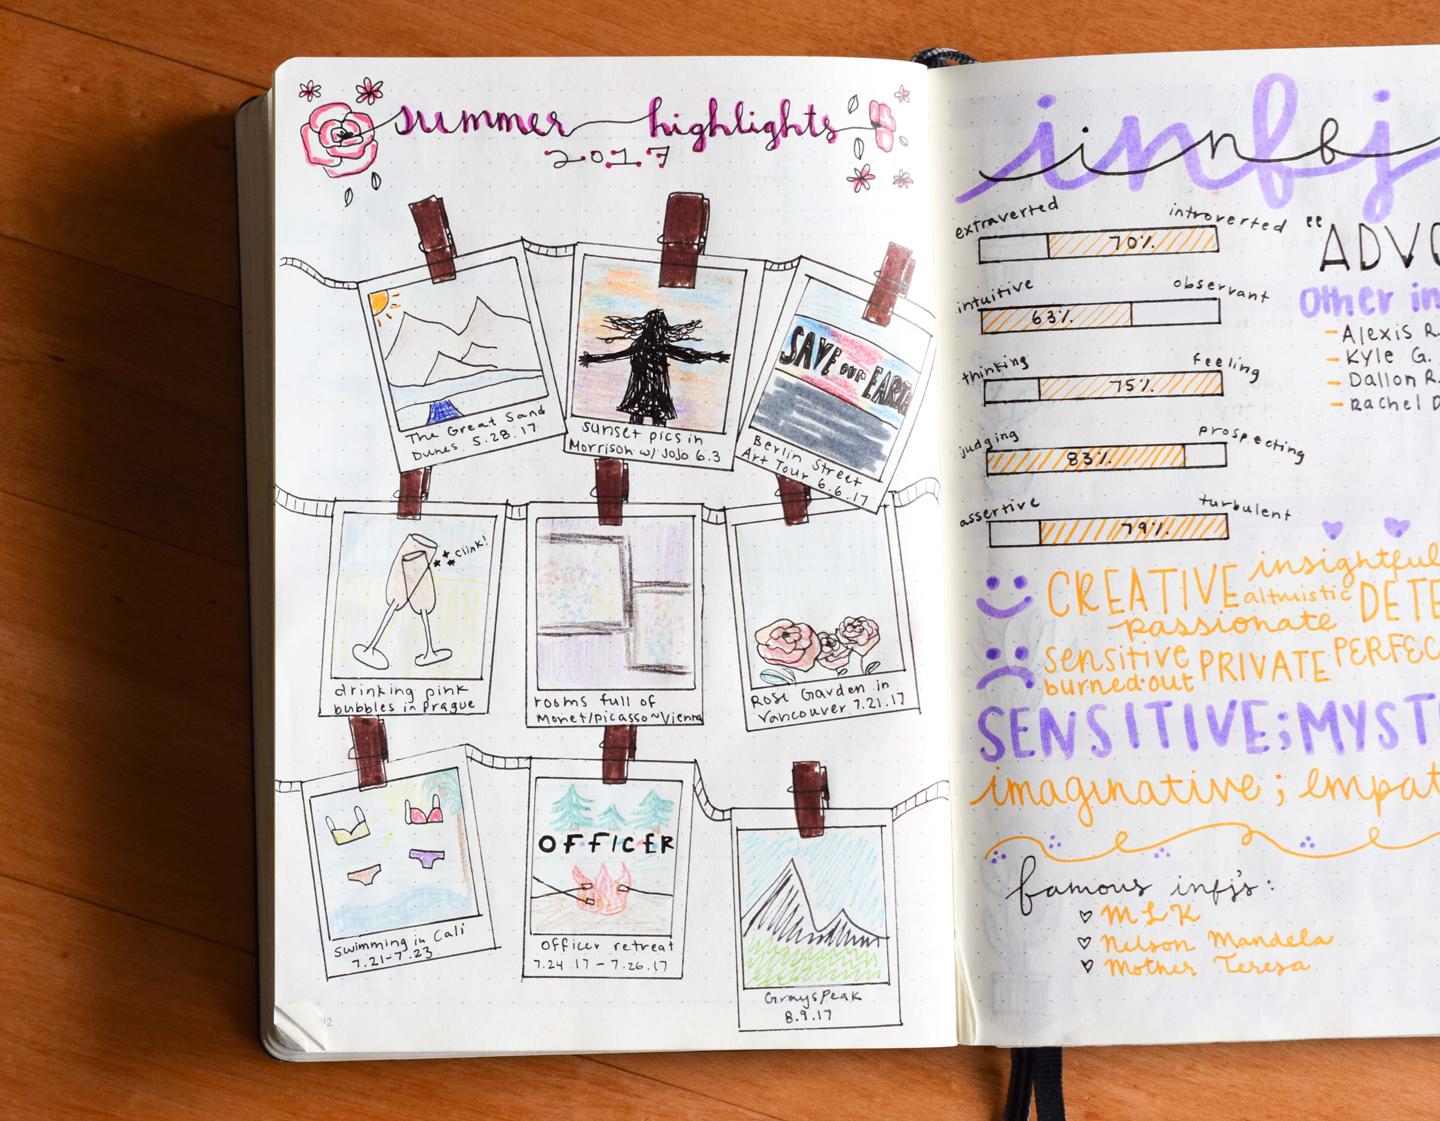 summer highlights
2017
The Great Sand
Dunes. 5.28.17
sunset pics in
Morrison w/ JoJo 6.3
SAVE our EARTH
Berlin Street
Art Tour 6.6.17
clink!
drinking pink
bubbles in Prague
rooms full of
Monet/Picasso~Vienna
Rose Garden in
Vancouver 7.21.17
Swimming in Cali
7.21-7.23
OFFICER
Officer retreat
7.24.17 - 7.26.17
Grays Peak
8.9.17
92
infj
infj
extraverted introverted
70%
intuitive observant
63%
thinking feeling
75%
judging prospecting
83%
assertive turbulent
79%
"ADVO
Other in
- Alexis R.
- Kyle G.
- Dallon R.
- Rachel D
CREATIVE insightful
altruistic DETE
passionate
sensitive PRIVATE PERFEC
burned-out
SENSITIVE; MYST
imaginative; Empat
famous infj's:
MLK
Nelson Mandela
Mother Teresa